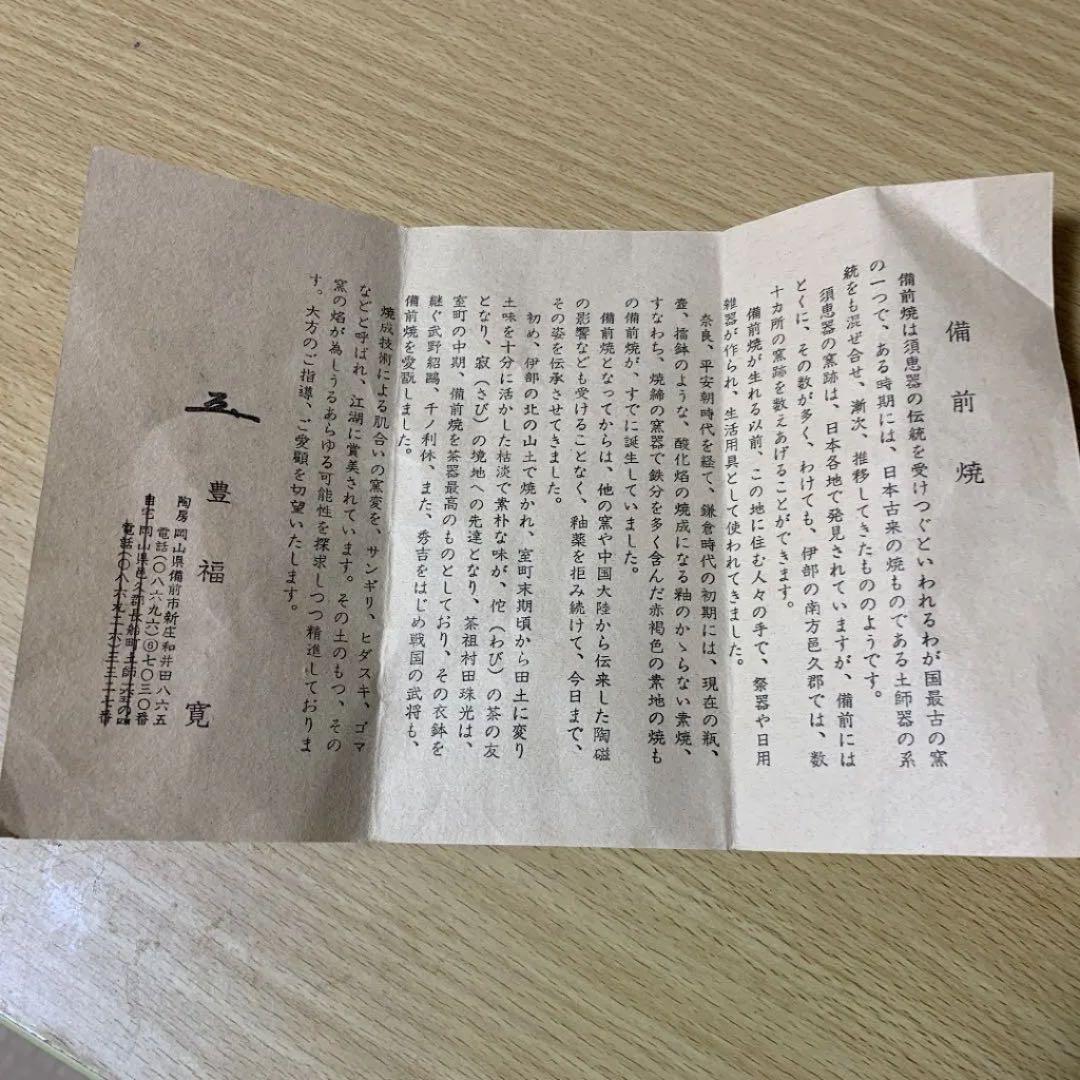 備前焼
備前焼は須恵器の伝統を受けつぐといわれるわが国最古の窯
の一つで、ある時期には、日本古来の焼ものである土師器の系
統をも混ぜ合せ、漸次、推移してきたもののようです。
須恵器の窯跡は、日本各地で発見されていますが、備前には
とくに、その数が多く、わけても、伊部の南方邑久郡では、数
十カ所の窯跡を数えあげることができます。
備前焼が生れる以前、この地に住む人々の手で、祭器や日用
雑器が作られ、生活用具として使われてきました。
奈良、平安朝時代を経て、鎌倉時代の初期には、現在の瓶、
壷、擂鉢のような、酸化焰の焼成になる釉のかゝらない素焼、
すなわち、焼締の窯器で鉄分を多く含んだ赤褐色の素地の焼も
の備前焼が、すでに誕生していました。
備前焼となってからは、他の窯や中国大陸から伝来した陶磁
の影響なども受けることなく、釉薬を拒み続けて、今日まで、
その姿を伝承させてきました。
初め、伊部の北の山土で焼かれ、室町末期頃から田土に変り
土味を十分に活かした枯淡で素朴な味が、侘（わび）の茶の友
となり、寂（さび）の境地への先達となり、茶祖村田珠光は、
室町の中期、備前焼を茶器最高のものとしており、その衣鉢を
継ぐ武野紹鷗、千ノ利休、また、秀吉をはじめ戦国の武将も、
備前焼を愛翫しました。
焼成技術による肌合いの窯変を、サンギリ、ヒダスキ、ゴマ
などと呼ばれ、江湖に賞美されています。その土のもつ、その
窯の焰が為しうるあらゆる可能性を探求しつつ精進しておりま
す。大方のご指導、ご愛顧を切望いたします。
豊福寛
陶房 岡山県備前市新庄和井田八六五
電話（〇八六九六）⑥七〇三〇番
自宅 岡山県邑久郡長船町土師
電話（〇八六九二六）三三一七番